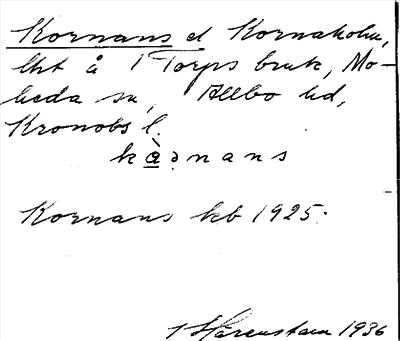 Kornans el Kornaholm,
lht å Torps bruk, Mo-
heda sn, Allbo hd,
Kronobs l.
kò̱ṇnans
Kornans kb 1925.
Härenstam 1936